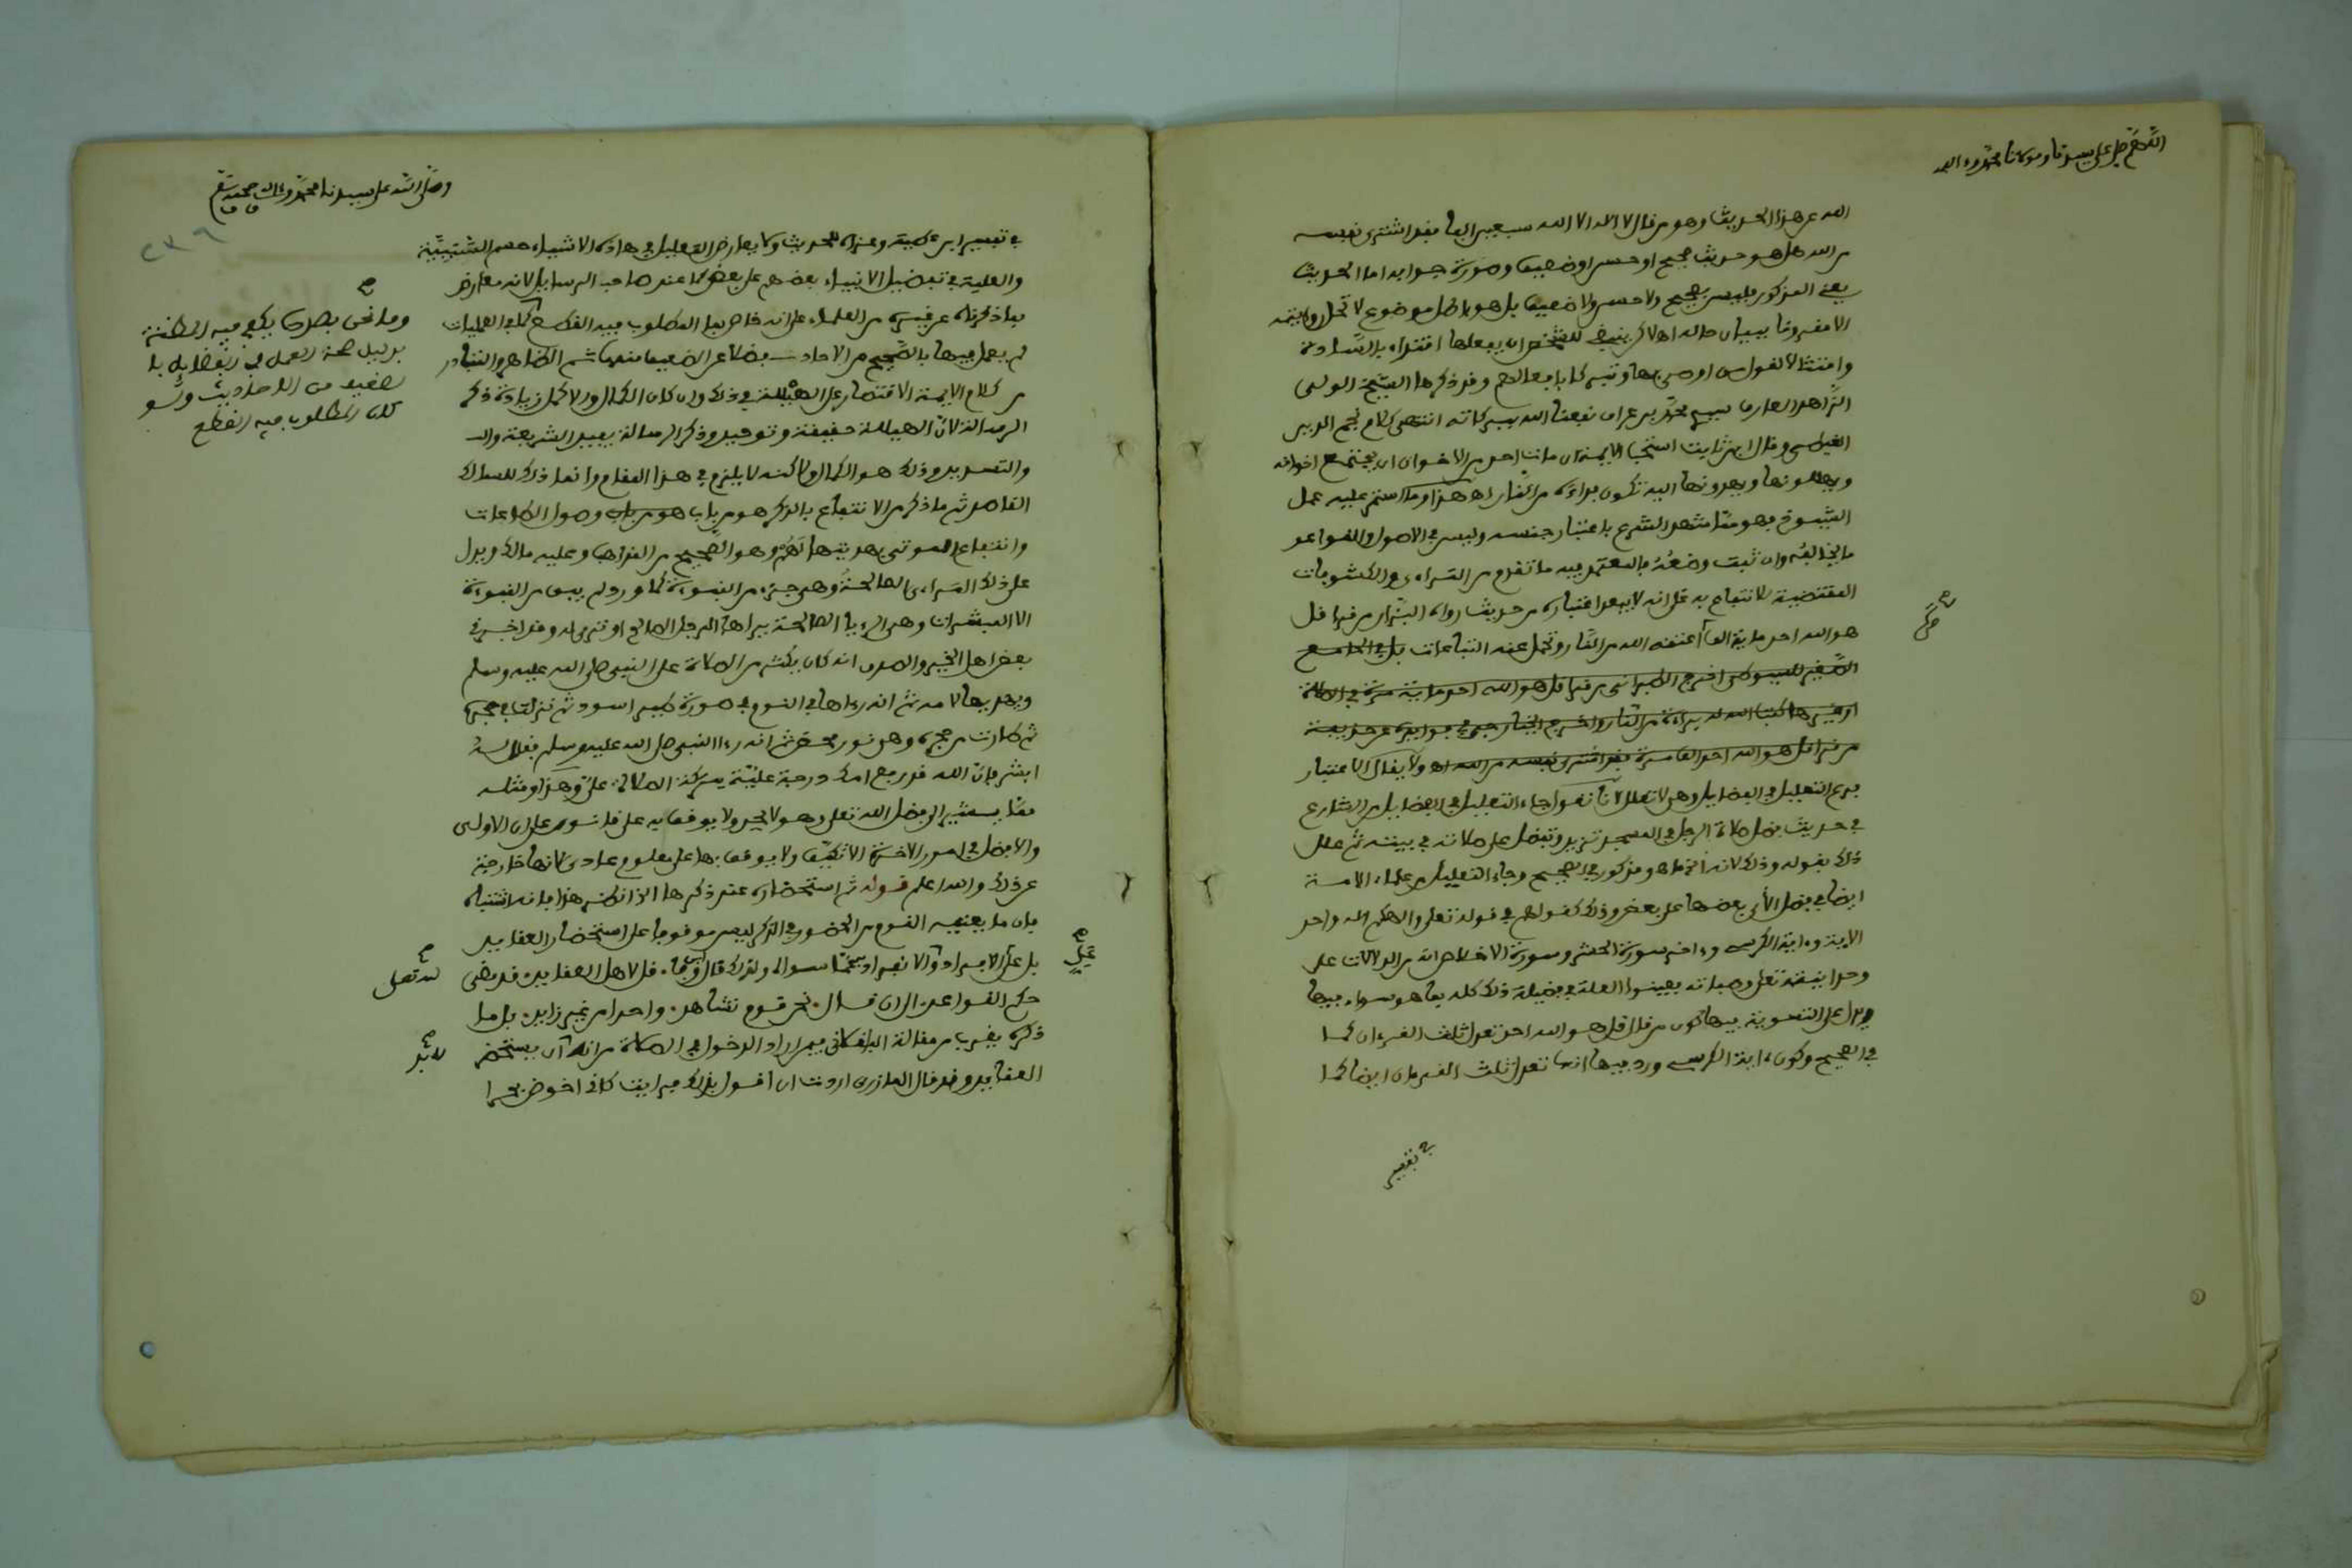 اللهم صل على سيدنا ومولانا محمد وءاله
الله عن هذا الحديث وهو من قال لا اله الا الله سبعين الفا فقد اشترى نفسه
من الله هل هو حديث صحيح او حسن او ضعيف وصورة جوابه اما الحديث
يعني المذكور فليس بصحيح ولا حسن ولا ضعيف بل هو باطل موضوع لا تحل روايته
الا مقرونا ببيان حاله اه لاكن ينبغي للشخص ان يفعلها اقتداء بالسادة
وامتثالا لقول من اوصى بها وتبركا بافعالهم وقد ذكرها الشيخ الولي
الزاهد العارف سيدي محمد بن عراق نفعنا الله ببركاته انتهى كلام نجم الدين
الغيطي وقال ابن ثابت استحب الايمة ان مات احد من الاخوان ان يجتمع اخوانه
ويهللونها ويهدونها اليه تكون براءة من النار اه هذا وما استمر عليه عمل
الشيوخ فهو مما شهد الشرع باعتبار جنسه وليس في الاصول والقواعد
ما يخالفه وان ثبت وضعه فالمعتمد فيه ما تقدم من المراءي والكشوفات
المقتضية لانتفاع به على انه لا يبعد اعتباره من حديث رواه البزار من قرا قل
هو الله احد ماية الف اعتقه الله من النار وتحمل عنه التباعات بل في الجامع
الصغير للسيوطي اخرج الطبراني من قرا قل هو الله احد ماية مرة في الصلاة
او غيرها كتب الله له براءة من النار واخرج الخيارجي في فوايده عن حذيفة
من قرا قل هو الله احد الف مرة فقد اشترى نفسه من الله اه ولا يقال الاعتبار
فرع التعليل في الفضايل وهي لا تعلل لانا نقول جاء التعليل في الفضايل من الشارع
في حديث فضل صلاة الرجل في المسجد تزيد وتفضل على صلاته في بيته ثم علل
ذلك بقوله وذلك لانه الخ ما هو مذكور في الصحيح وجاء التعليل من علماء الامة
ايضا في فضل الأي بعضها على بعض وذلك كقولهم في قوله تعلى والهكم اله واحد
الاية وءاية الكرسي وءاخر سورة الحشر وسورة الاخلاص انه من الدلالات على
وحدانيته تعلى وصفاته بعينوا العلة في فضيلة ذلك كله بما هو سواء فيها
ويدل على التسوية بينها كون من قال قل هو الله احد تعدل ثلث القرءان كما
في الصحيح وكون ءاية الكرسي ورد فيها انها تعدل ثلث القرءان ايضا كما
صح
في تفسير
وصلى الله على سيدنا محمد وءاله وصحبه وسلم
٢٣٦
في تفسير ابن عطية وعزاه للحديث ولا يعارض التعليل في هاذه الاشياء حسم الشيبيّة
والعلية في تفضيل الانبياء بعضهم على بعض كما عند صاحب الرسايل لانه معارض
بما ذكرناه عن غيره من العلماء على انه خاص بما المطلوب فيه القطع كما في العمليات
لم يعمل فيها بالصحيح من الاحاديث فضلا عن الضعيف منها ثم الظاهر والمتبادر
من كلام الايمة الاقتصار على الهيللة في ذلك وان كان الكمال والاكمل زيادة ذكر
الرسالة لان الهيللة حقيقة وتوحيد وذكر الرسالة يفيد الشريعة والـ
والتسديد وذلك هو الكمال ولاكنه لا يلزم في هذا المقام وانما ذلك للسالك
القاصد ثم ما ذكر من الانتفاع بالذكر هو من باب هو من باب وصول الطاعات
وانتفاع الموتى بهديتها لهم وهو الصحيح من المذاهب وعليه مالك ويدل
على ذلك المراءي الصالحة وهي جزء من النبوءة كما ورد لم يبق من النبوءة
الا المبشرات وهي الرءيا الصالحة يراها الرجل الصالح او ترى له وقد اخبرني
بعض اهل الخير والصدق انه كان يكثر من الصلاة على النبي صلى الله عليه وسلم
ويهديها لامه ثم انه رءاها في النوم في صورة طير اسود ثم نزلت في حجره
ثم طارت من حجره وهي نور محض ثم انه رءا النبي صلى الله عليه وسلم فقال له
ابشر فان الله قد رفع امك درجة عليّة ببركة الصلاة عليّ وهذا ومثله
مما يستشير الى فضل الله تعلى وهو لا يحد ولا يوقف به على قانون على ان الاولى
والافضل في امور الاخرة الا تكيّف ولا يوقف بها على معلوم عادي لانها خارجة
عن ذلك والله اعلم قوله ثم استحضاره عند ذكرها الخ انظر هذا فانه اشتباه
فان ما يعنيه القوم من الحضور في الذكر ليس موقوفا على استحضار العقايد
بل على الافراد والانفراد به عما سواه ولذلك قال ليس فا. قل لاهل العقايد. قد مضى
حكم القواعد. الى ان قال. نحن قوم نشاهد. واحدا من غير زايد. بل ما
ذكره يقرب من مقالة الباقلاني فيمن اراد الدخول في الصلاة من انه لا بد ان يستحضر
العقايد وقد قال المازري اردت ان اقول بذلك فرايت كاني اخوض بحرا
صح
وما نحن بصدده يكفي فيه المظنة
بدليل صحة العمل في الفضايل بالـ
ضعيف من الاحاديث ولو
كان المطلوب فيه القطع
صح
له تعلى
صح
لا بد